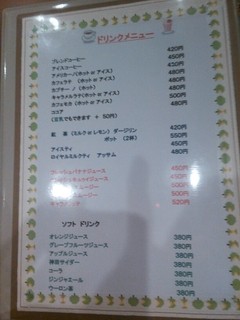 ドリンクメニュー
ブレンドコーヒー 420円
アイスコーヒー 450円
アメリカーノ(ホット or アイス) 480円
カフェラテ (ホット or アイス) 480円
カプチーノ (ホット) 480円
キャラメルラテ(ホット or アイス) 500円
カフェモカ (ホット or アイス) 480円
ココア
(豆乳でもできます + 50円)
紅 茶 (ミルク or レモン) ダージリン 420円
ポット (2杯) 550円
アイスティ 450円
ロイヤルミルクティ アッサム 480円
フレッシュバナナジュース 450円
ジュース
500円
520円
ソフト ドリンク
オレンジジュース 380円
グレープフルーツジュース 380円
アップルジュース 380円
神戸サイダー 380円
コーラ 380円
ジンジャエール 380円
ウーロン茶 380円